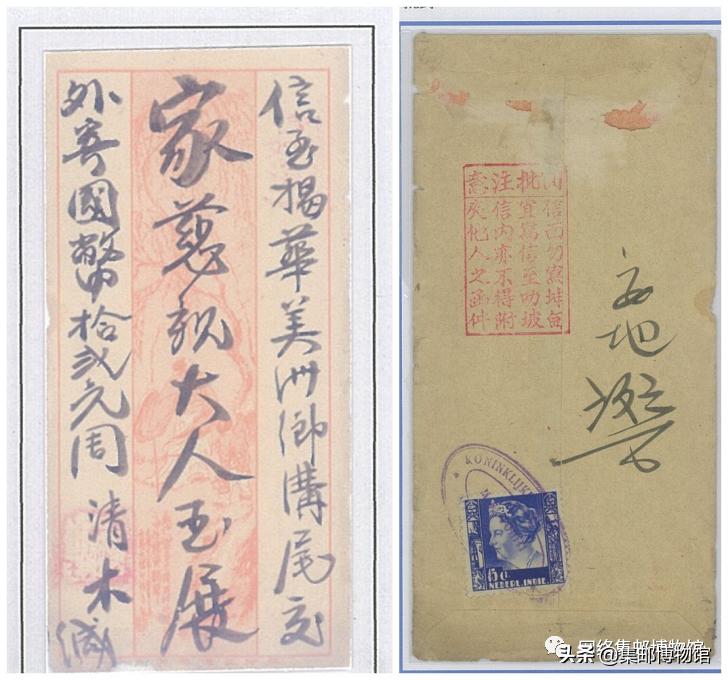 信至揭華美洲鄉溝尾交
家慈親大人玉展
外寄國幣拾弍元周清木緘
回批注意
信面勿寫埠
宜寫信至叻坡
信內亦不得附
他人之函件
KONINKLIJK
15c
NEDERL.INDIE
网络集邮博物馆
头条@集邮博物馆